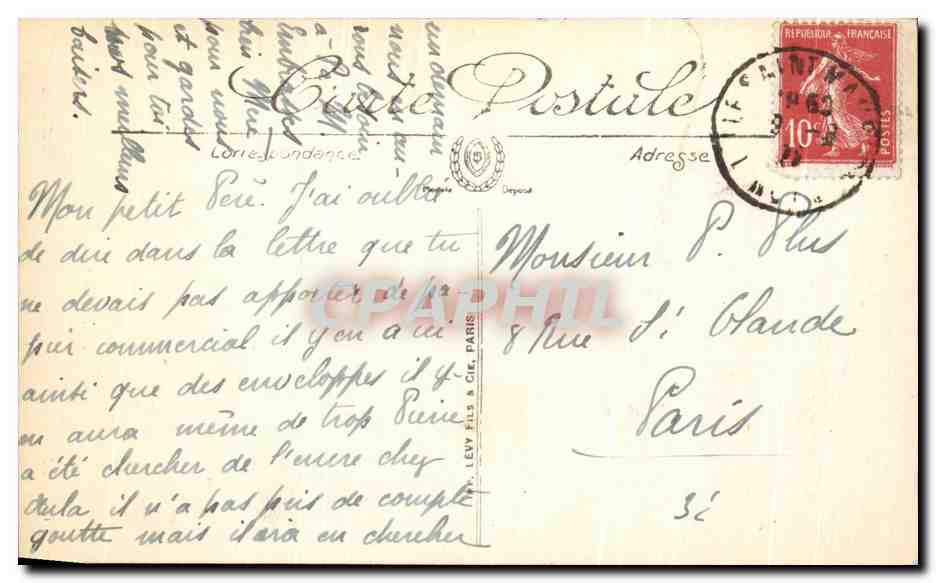 Carte Postale
Correspondance
Adresse
Modèle Déposé
REPUBLIQUE FRANÇAISE
10c
POSTES
Mon petit Père. J'ai oublié
de dire dans la lettre que tu
ne devais pas apporter de pa-
pier commercial il y en a ici
ainsi que des enveloppes il y
en aura même de trop Pierre
a été chercher de l'encre chez
il n'a pas pris de compte
goutte mais il ira en chercher
un demain
nous
à
Embrasses
bien Mère
pour nous
et gardes
pour toi
nos meilleurs
baisers.
IMP. LEVY FILS & CIE, PARIS
Monsieur P. Plus
8 Rue St Claude
Paris
3e
CPAPHIL